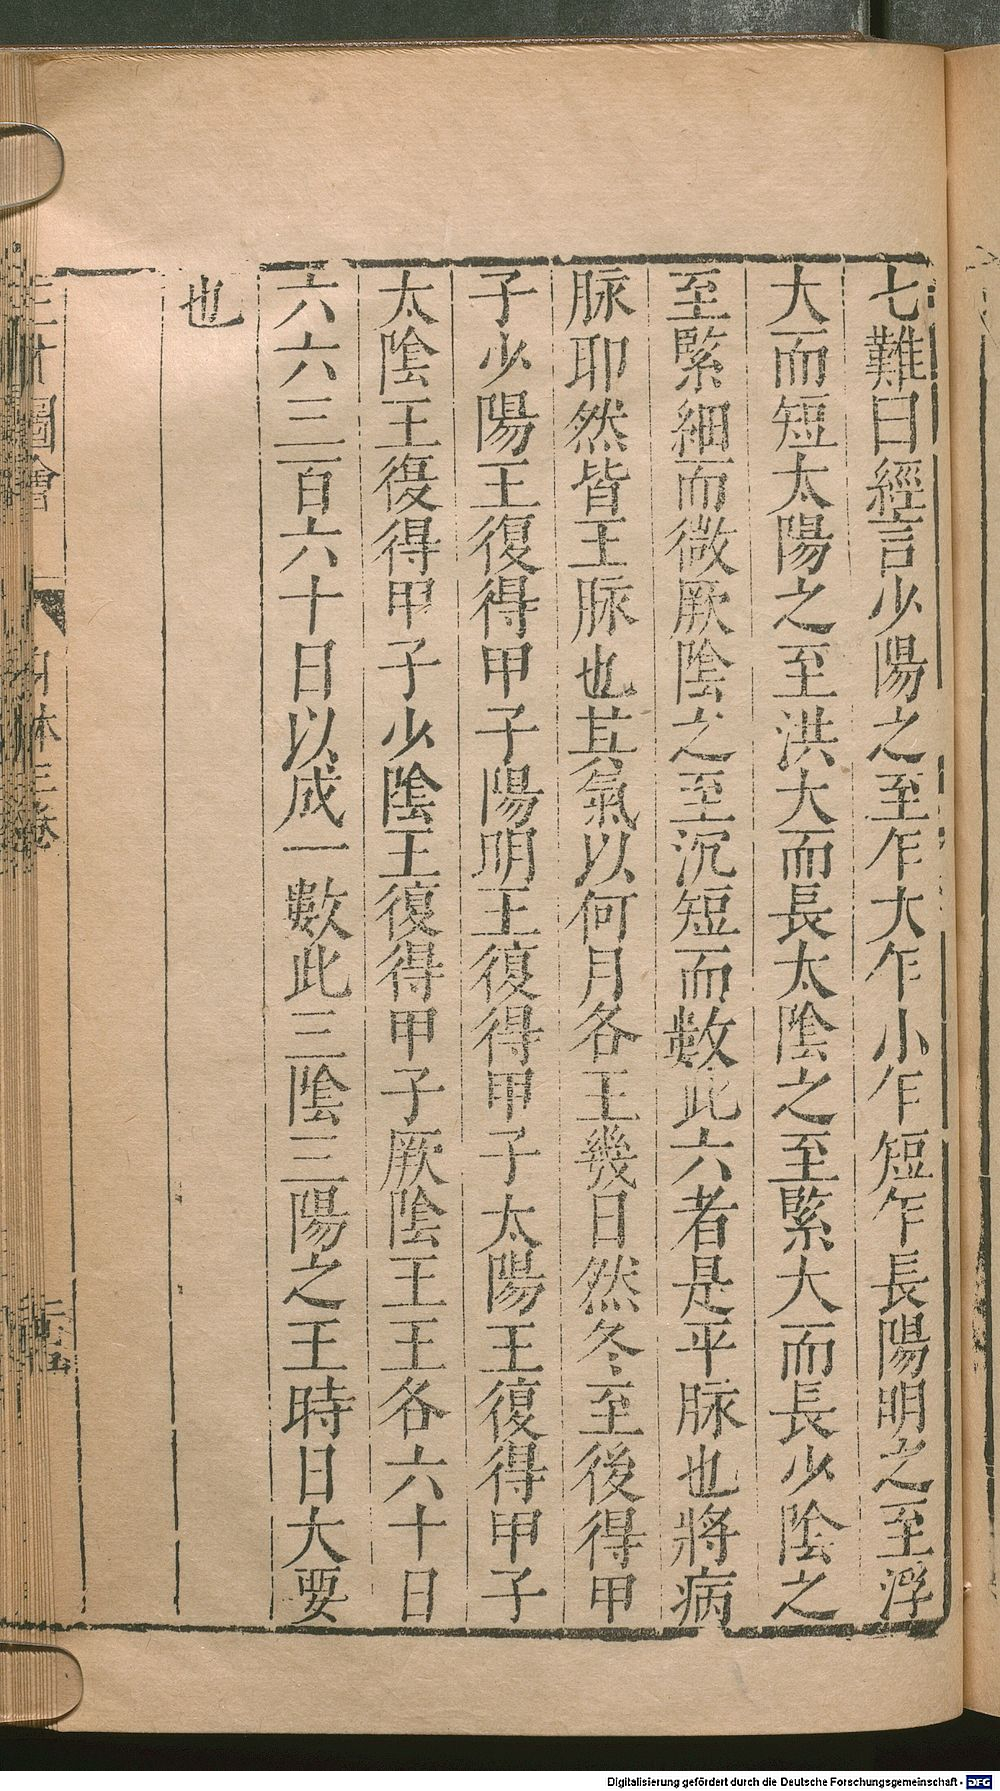 七難曰經言少陽之至乍大乍小乍短乍長陽明之至浮
大而短太陽之至洪大而長太陰之至緊大而長少陰之
至緊細而微厥陰之至沉短而數此六者是平脉也將病
脉耶然皆王脉也其氣以何月各王幾日然冬至後得甲
子少陽王復得甲子陽明王復得甲子太陽王復得甲子
太陰王復得甲子少陰王復得甲子厥陰王王各六十日
六六三百六十日以成一數此三陰三陽之王時日大要
也
三才圖會 身体三卷
Digitalisierung gefördert durch die Deutsche Forschungsgemeinschaft - DFG